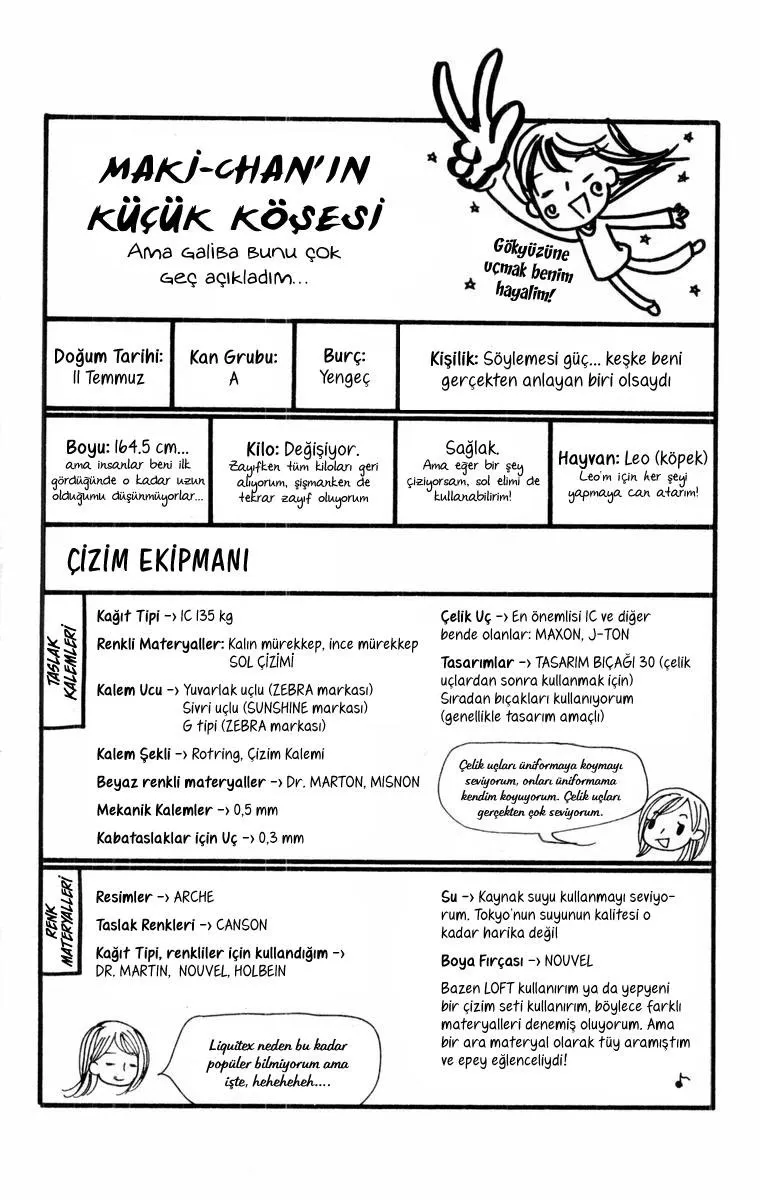 MAKİ-CHAN'IN
KÜÇÜK KÖŞESİ
Ama Galiba Bunu çok
Geç açıkladım...
Gökyüzüne
uçmak benim
hayalim!
Doğum Tarihi:
11 Temmuz
Kan Grubu:
A
Burç:
Yengeç
Kişilik: Söylemesi güç... keşke beni
gerçekten anlayan biri olsaydı
Boyu: 164.5 cm...
ama insanlar beni ilk
gördüğünde o kadar uzun
olduğumu düşünmüyorlar...
Kilo: Değişiyor.
Zayıfken tüm kiloları geri
alıyorum, şişmanken de
tekrar zayıf oluyorum
Sağlak.
Ama eğer bir şey
çiziyorsam, sol elimi de
kullanabilirim!
Hayvan: Leo (köpek)
Leo'm için her şeyi
yapmaya can atarım!
ÇİZİM EKİPMANI
TASLAK
KALEMLERİ
Kağıt Tipi -> IC 135 kg
Renkli Materyaller: Kalın mürekkep, ince mürekkep
SOL ÇİZİMİ
Kalem Ucu -> Yuvarlak uçlu (ZEBRA markası)
Sivri uçlu (SUNSHINE markası)
G tipi (ZEBRA markası)
Kalem Şekli -> Rotring, Çizim Kalemi
Beyaz renkli materyaller -> Dr. MARTON, MISNON
Mekanik Kalemler -> 0,5 mm
Kabataslaklar için Uç -> 0,3 mm
Çelik Uç -> En önemlisi IC ve diğer
bende olanlar: MAXON, J-TON
Tasarımlar -> TASARIM BIÇAĞI 30 (çelik
uçlardan sonra kullanmak için)
Sıradan bıçakları kullanıyorum
(genellikle tasarım amaçlı)
Çelik uçları üniformaya koymayı
seviyorum, onları üniformama
kendim koyuyorum. Çelik uçları
gerçekten çok seviyorum.
RENK
MATERYALLERİ
Resimler -> ARCHE
Taslak Renkleri -> CANSON
Kağıt Tipi, renkliler için kullandığım ->
DR. MARTIN, NOUVEL, HOLBEIN
Liquitex neden bu kadar
popüler bilmiyorum ama
işte, heheheheh....
Su -> Kaynak suyu kullanmayı seviyo-
rum. Tokyo'nun suyunun kalitesi o
kadar harika değil
Boya Fırçası -> NOUVEL
Bazen LOFT kullanırım ya da yepyeni
bir çizim seti kullanırım, böylece farklı
materyalleri denemiş oluyorum. Ama
bir ara materyal olarak tüy aramıştım
ve epey eğlenceliydi!